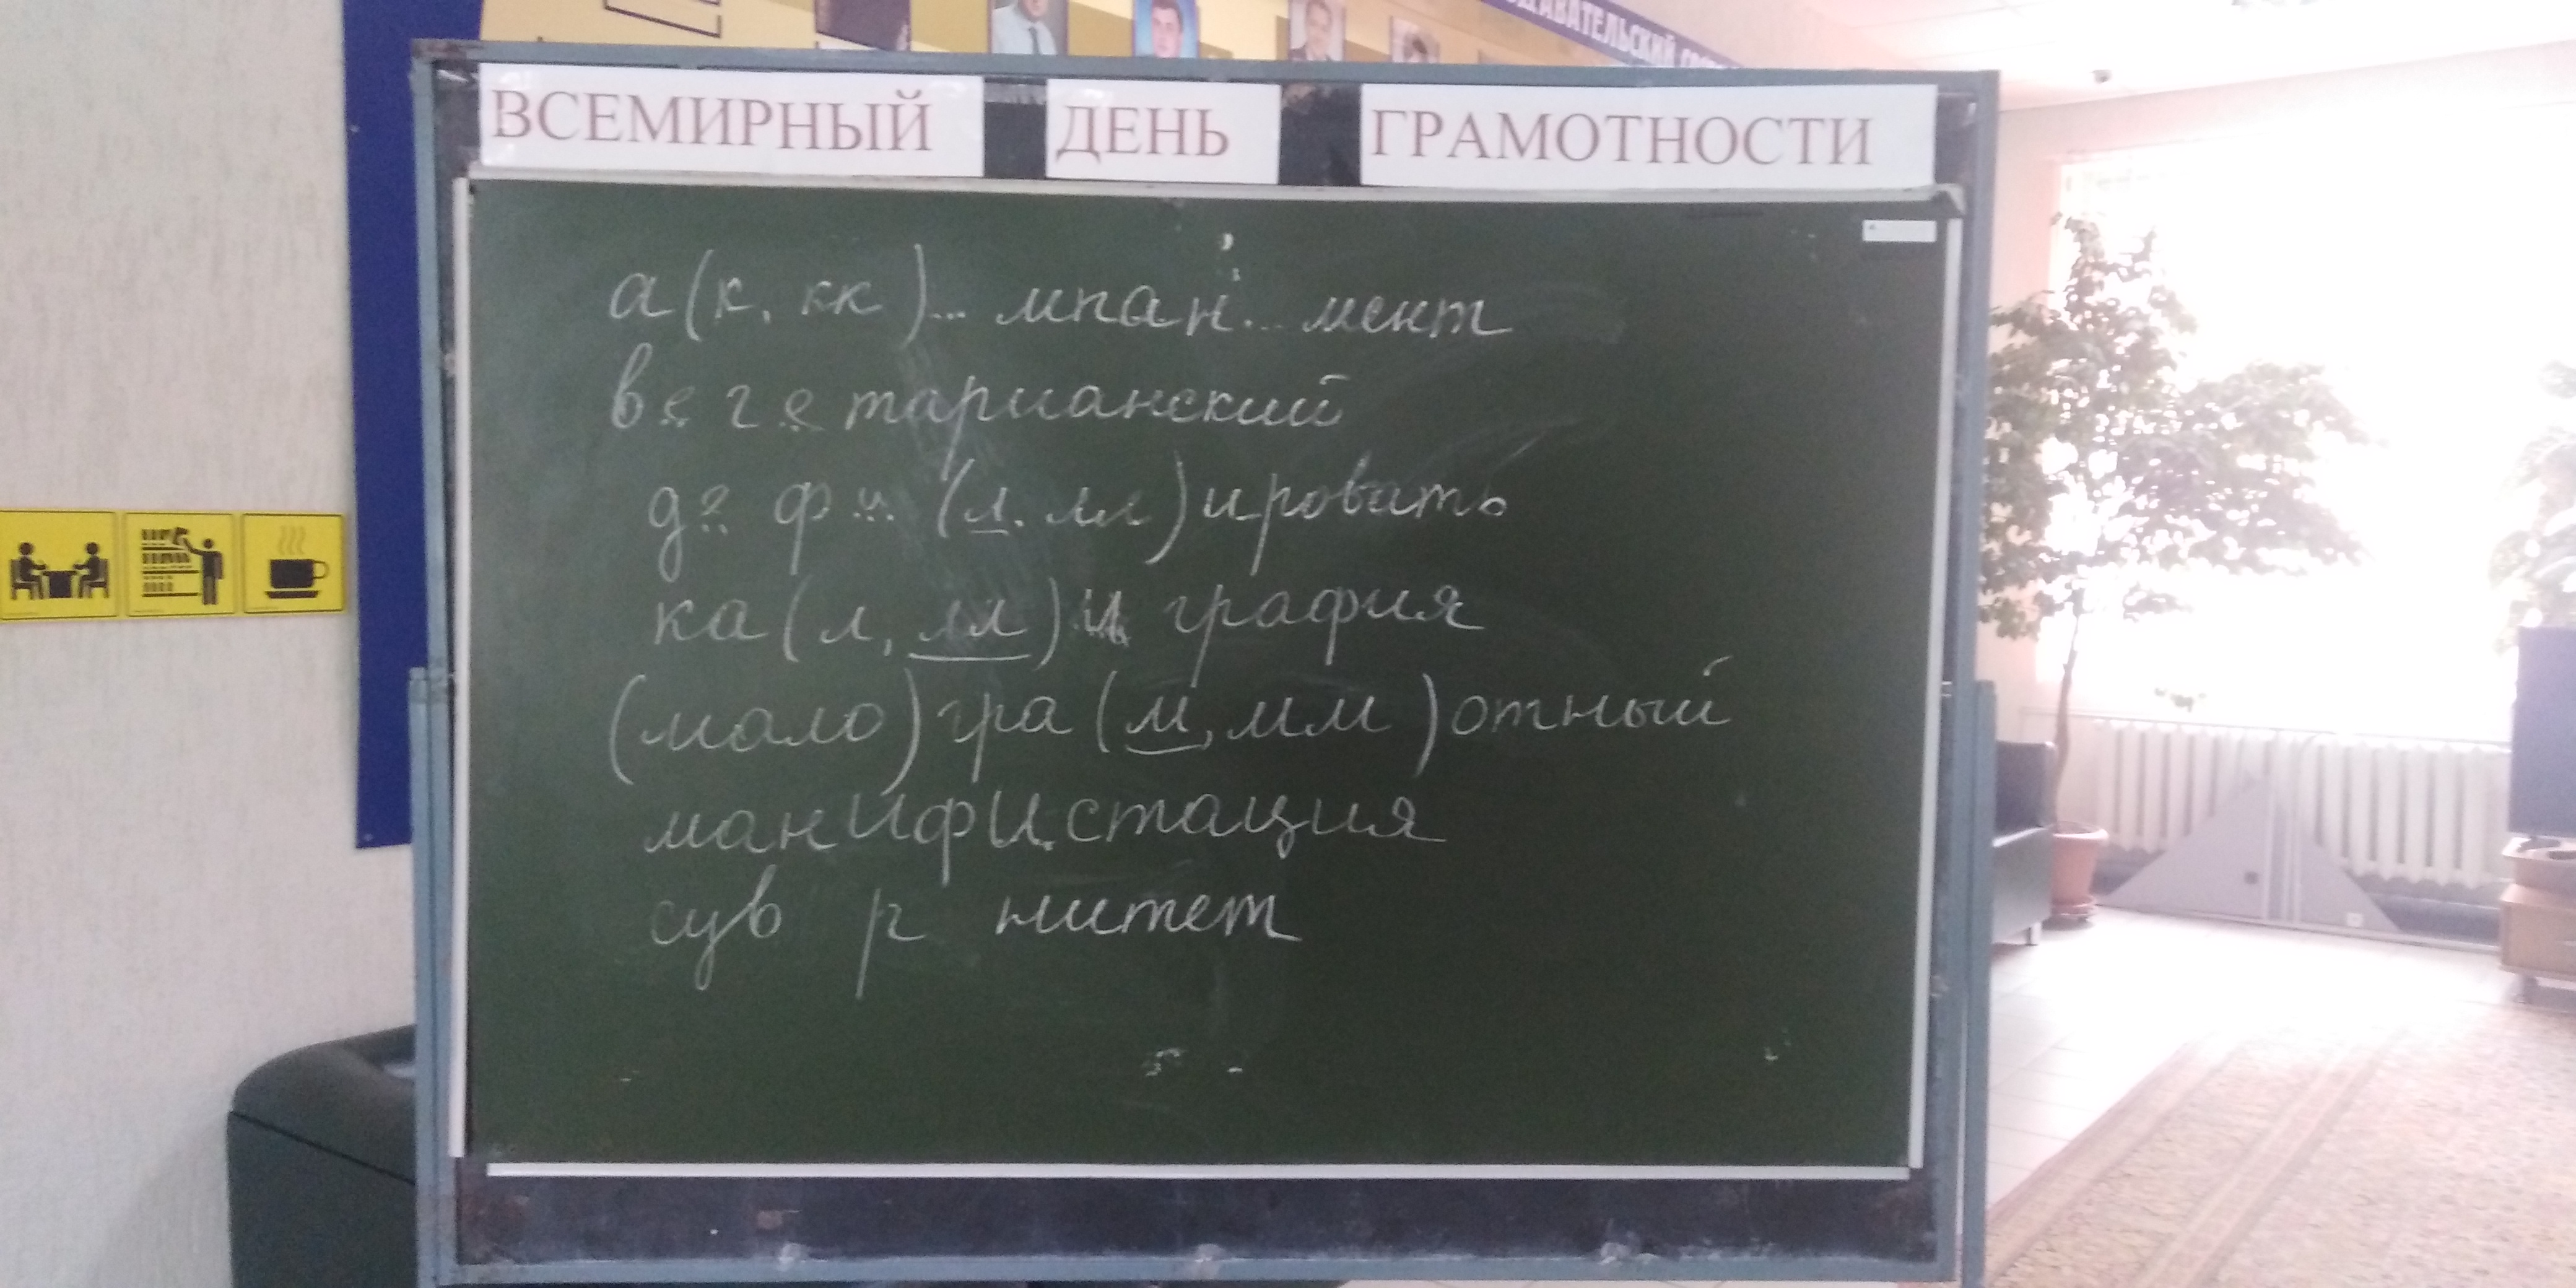 ВСЕМИРНЫЙ ДЕНЬ ГРАМОТНОСТИ
а(к, кк)... мпан... мент
вегетарианский
де фи (л, лл)ировать
ка(л, лл)и графия
(мало)гра(м, мм)отный
манифистация
сув р нитет